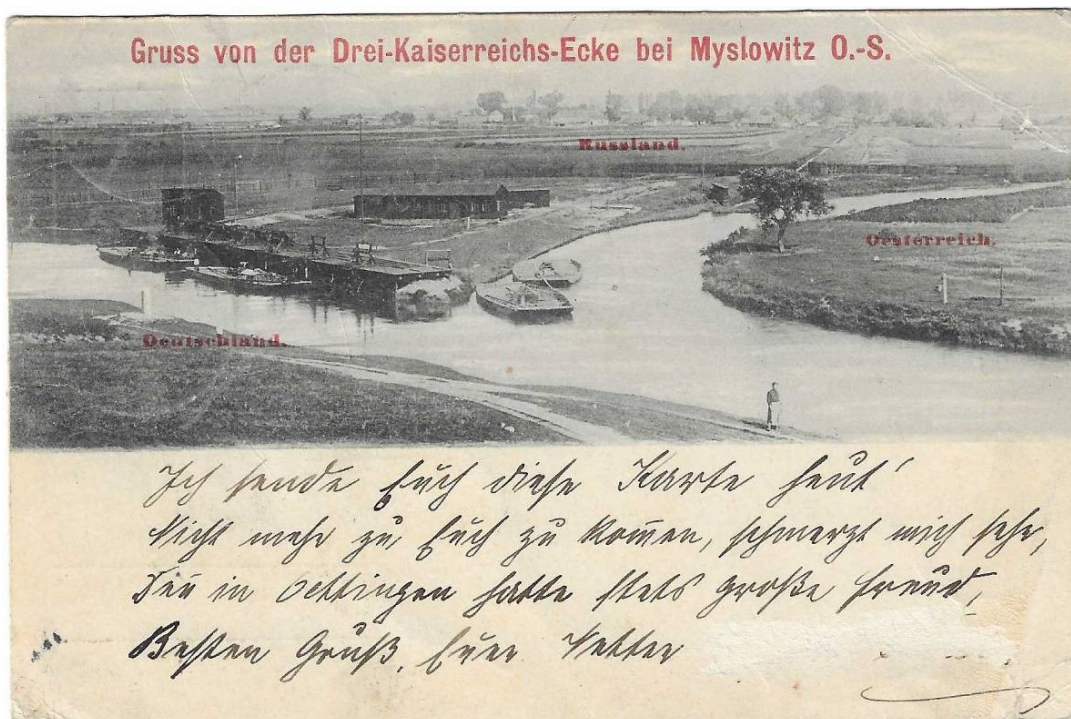 Gruss von der Drei-Kaiserreichs-Ecke bei Myslowitz O.-S.
Russland.
Oesterreich.
Deutschland.
Ich sende Euch diese Karte heut'
Nicht mehr zu Euch zu kom̄en, schmerzt mich sehr,
Den̄ in Oettingen hatte stets große Freud,
Besten Gruß, Euer Vetter